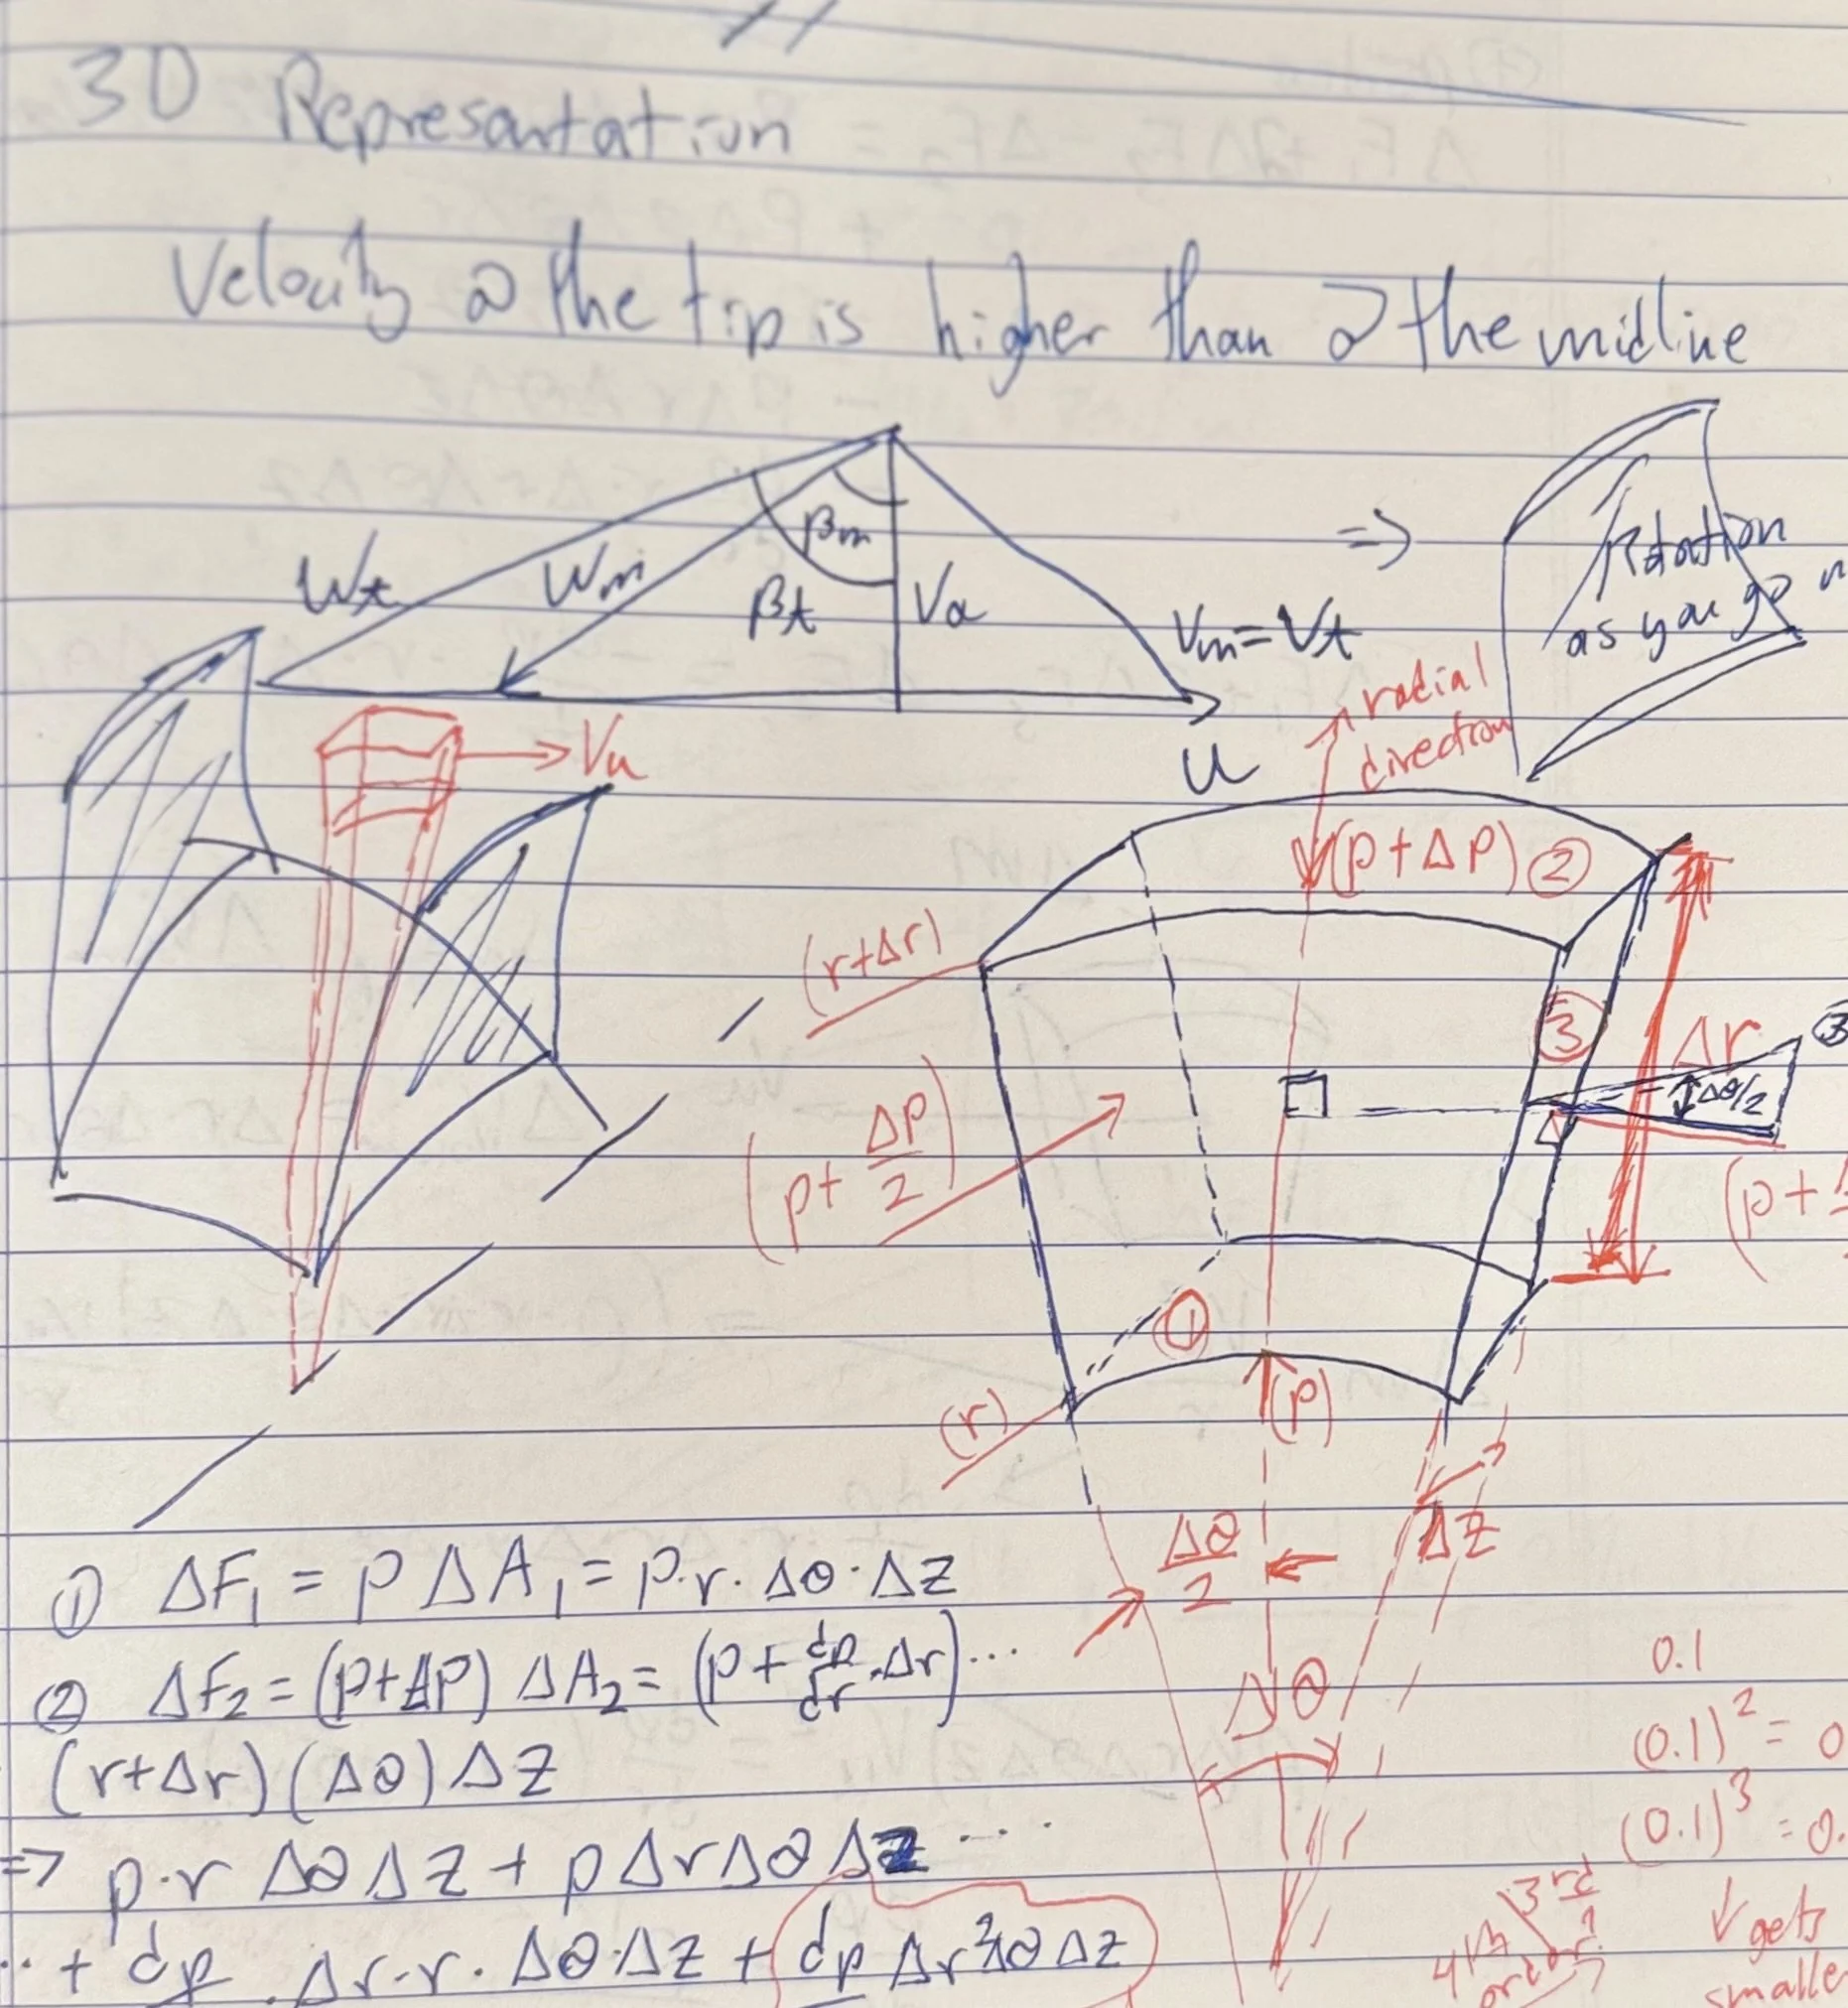 3D Represantation
Velocity @ the tip is higher than @ the midline
Wt
Wm
βm
βt
Va
Vm=Vt
U
=>
Rotation
as you go
Vu
radial
direction
(p+Δp) ②
(r+Δr)
③
Δr
Δθ/2
(p+Δp/2)
(p+
①
(r)
(p)
Δθ/2
ΔZ
Δθ
① ΔF₁ = p ΔA₁ = p.r. Δθ.ΔZ
② ΔF₂ = (p+Δp) ΔA₂ = (p+dp/dr.Δr)...
(r+Δr)(Δθ)ΔZ
=> p.r ΔθΔZ + pΔrΔθΔZ ...
.. + dp Δr.r. Δθ.ΔZ + dp Δr²Δθ ΔZ
0.1
(0.1)² = 0
(0.1)³ = 0.
↓ gets
3rd
4th
order